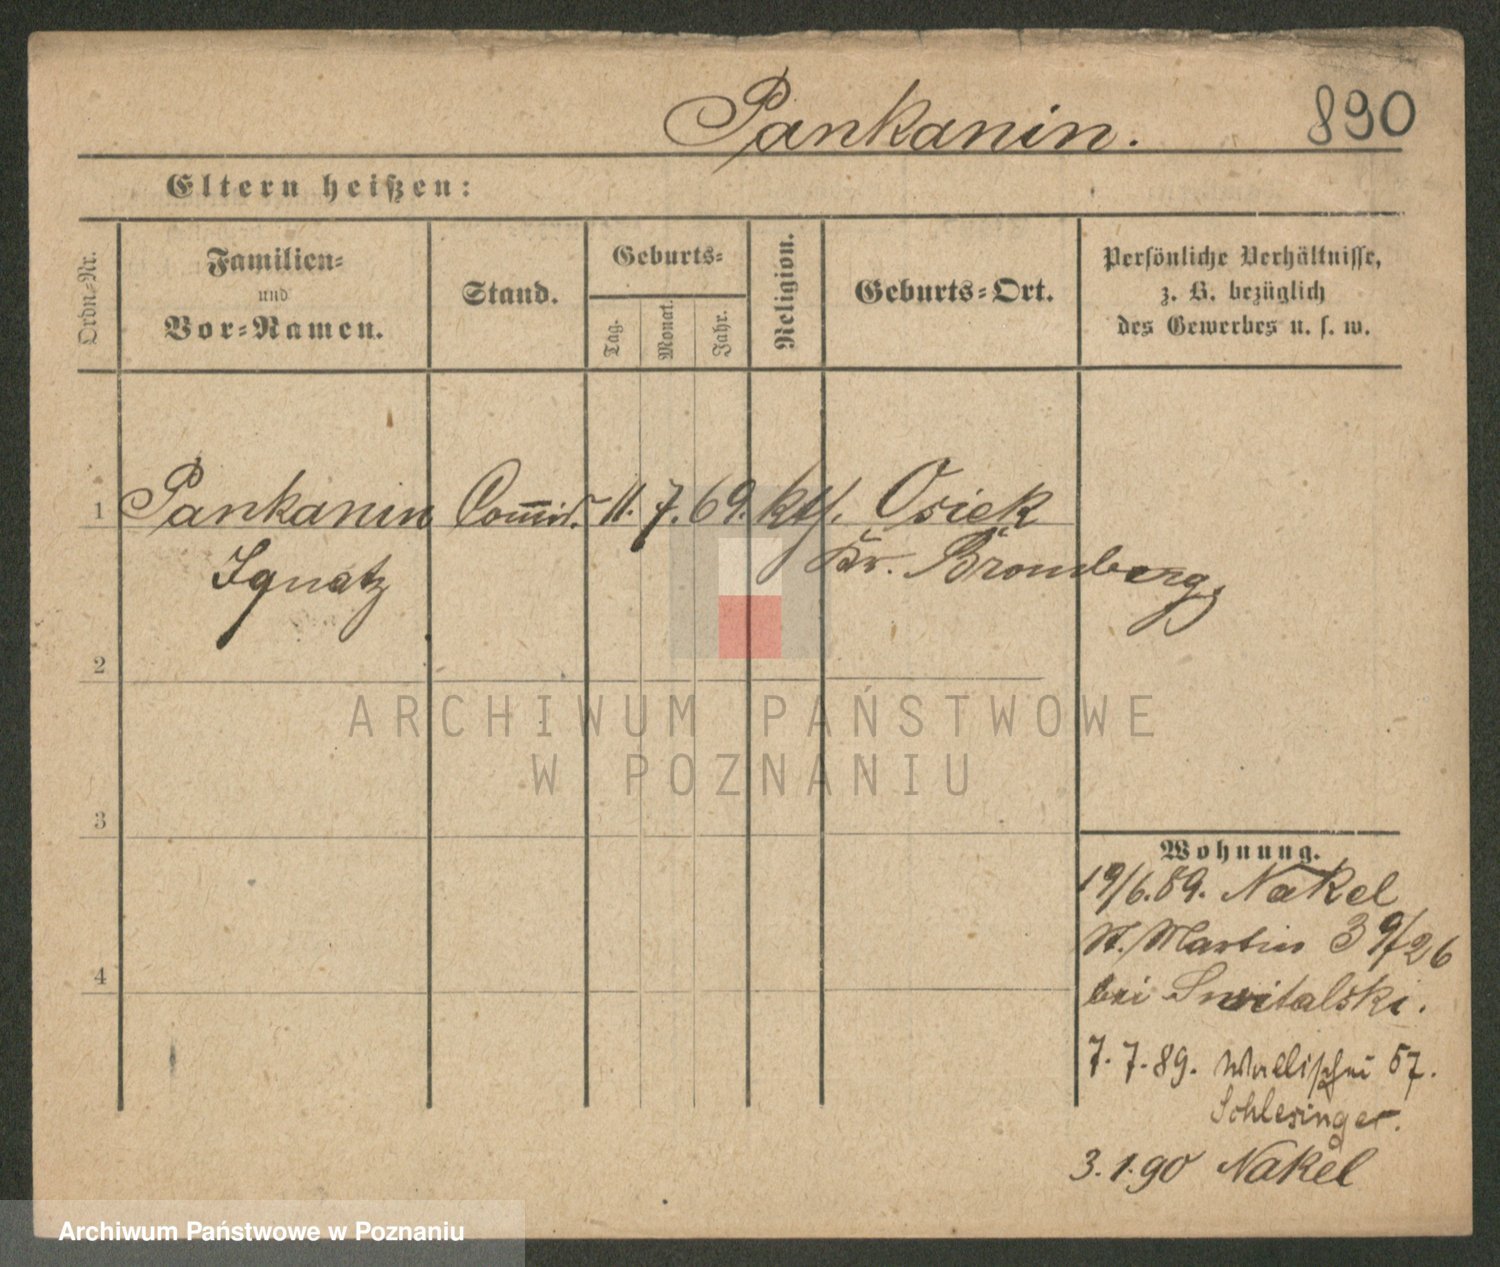 Pankanin.
890
Eltern heißen:
Ordn.-Nr.
Familien-
und
Vor-Namen.
Stand.
Geburts-
Tag.
Monat.
Jahr.
Religion.
Geburts-Ort.
Persönliche Verhältnisse,
z. B. bezüglich
des Gewerbes u. s. w.
1 Pankanin Com̅is. 11. 7. 69. kth. Osiek
Ignatz Kr. Bromberg
2
ARCHIWUM PAŃSTWOWE
W POZNANIU
3
Wohnung.
19/6.89. Nakel
St. Martin 39/26
bei Switalski.
4
7. 7. 89. Wallischei 57.
Schlesinger.
3. 1. 90 Nakel
Archiwum Państwowe w Poznaniu